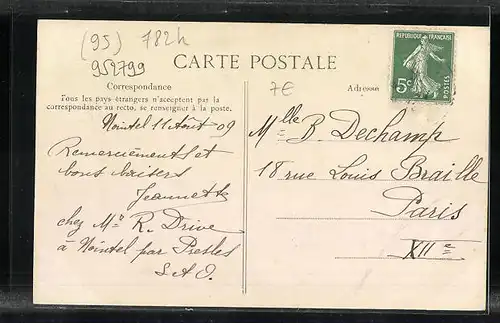 (95) 782h
952799
7€
CARTE POSTALE
Correspondance
Tous les pays étrangers n'acceptent pas la
correspondance au recto, se renseigner à la poste.
Adresse
REPUBLIQUE FRANÇAISE
5c
POSTES
Nointel 11 Août 09
Remerciements et
bons baisers
Jeannette
chez Mr R. Drive
à Nointel par Presles
S.&O.
Mlle B. Dechamp
18 rue Louis Braille
Paris
XIIe